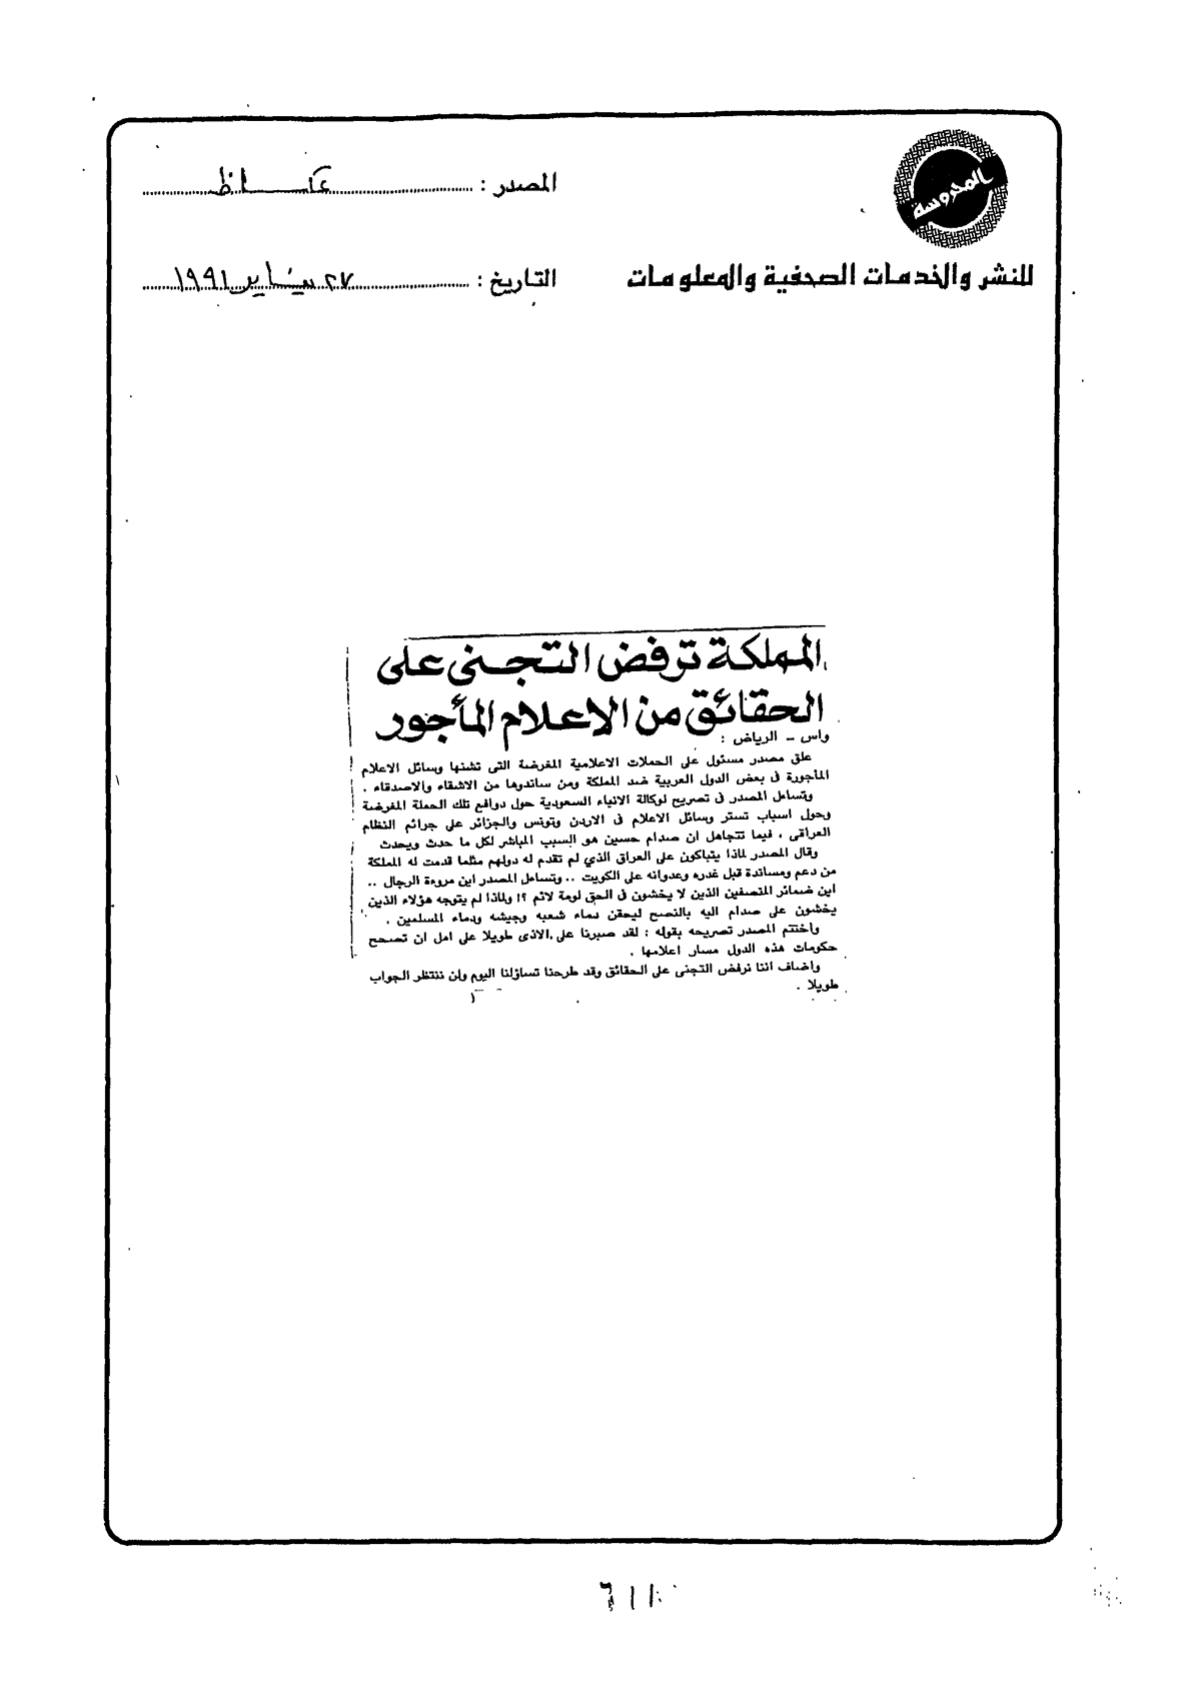 المحروسة
للنشر والخدمات الصحفية والمعلومات
المصدر : عكاظ
التاريخ : ٢٧ يناير ١٩٩١
المملكة ترفض التجنى على
الحقائق من الاعلام المأجور
واس - الرياض :
علق مصدر مسئول على الحملات الاعلامية المغرضة التى تشنها وسائل الاعلام
المأجورة فى بعض الدول العربية ضد المملكة ومن ساندوها من الاشقاء والاصدقاء .
وتساءل المصدر فى تصريح لوكالة الانباء السعودية حول دوافع تلك الحملة المغرضة
وحول اسباب تستر وسائل الاعلام فى الاردن وتونس والجزائر على جرائم النظام
العراقى ، فيما تتجاهل ان صدام حسين هو السبب المباشر لكل ما حدث ويحدث
وقال المصدر لماذا يتباكون على العراق الذي لم تقدم له دولهم مثلما قدمت له المملكة
من دعم ومساندة قبل غدره وعدوانه على الكويت .. وتساءل المصدر اين مروءة الرجال ..
اين ضمائر المنصفين الذين لا يخشون فى الحق لومة لائم ؟! ولماذا لم يتوجه هؤلاء الذين
يخشون على صدام اليه بالنصح ليحقن دماء شعبه وجيشه ودماء المسلمين .
واختتم المصدر تصريحه بقوله : لقد صبرنا على الاذى طويلا على امل ان تصحح
حكومات هذه الدول مسار اعلامها .
واضاف اننا نرفض التجنى على الحقائق وقد طرحنا تساؤلنا اليوم ولن ننتظر الجواب
طويلا .